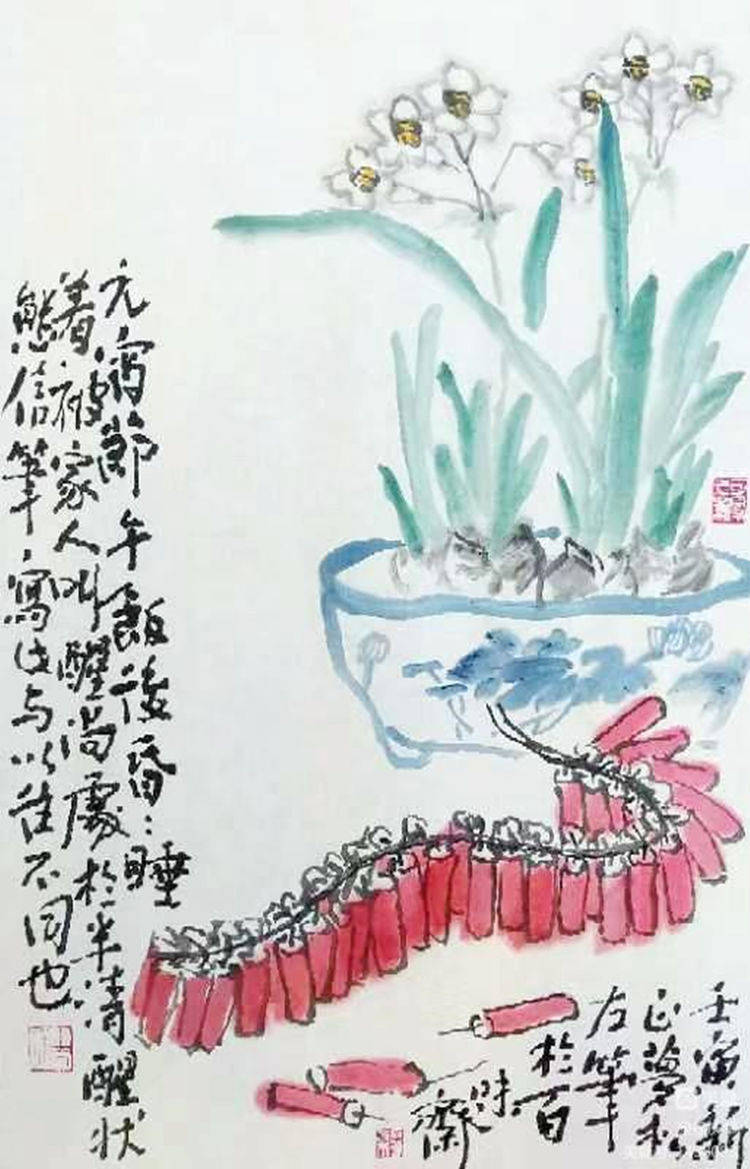 元宵節午飯後昏:睡
着被家人叫醒尚處於半清醒狀
態信筆寫此与以往不同也
壬寅新
正夢松
左筆
於百
味
齋